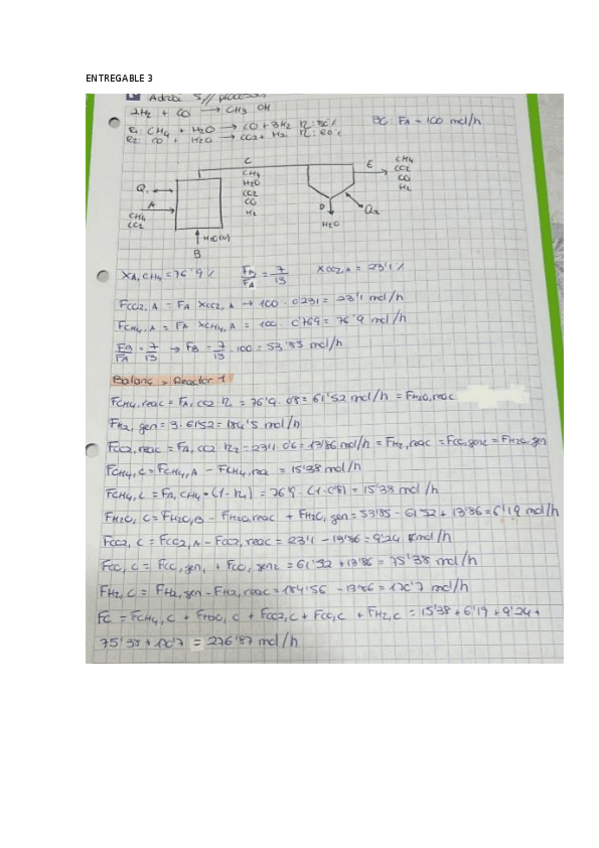 ENTREGABLE 3
2H₂ + CO → CH₃OH
BC: FA = 100 mol/h
R1: CH₄ + H₂O → CO + 3H₂ η: 80%
C
E
CH₄
CO₂
CO
H₂
CH₄
H₂O
CO₂
CO
H₂
Q₁
A
CH₄
CO₂
D
H₂O
Q₂
H₂O(v)
B
XA,CH₄ = 76'9% FB/FA = 7/13 XCO2,A = 23'1%
FCO2,A = FA XCO2,A → 100 · 0'231 = 23'1 mol/h
FCH4,A = FA XCH4,A = 100 · 0'769 = 76'9 mol/h
FB/FA = 7/13 → FB = 7/13 · 100 = 53'85 mol/h
Balanç → Reactor 1
FCH4,reac = FA,CO2 · η = 76'9 · 0'8 = 61'52 mol/h = FH2O,reac
FH2,gen = 3 · 61'52 = 184'5 mol/h
FCO2,reac = FA,CO2 · η₂ = 23'1 · 0'6 = 13'86 mol/h = FH2,reac = FCO,gen2 = FH2O,gen
FCH4,C = FCH4,A − FCH4,reac = 15'38 mol/h
FCH4,C = FA,CH4 · (1-η₁) = 76'9 · (1-0'8) = 15'38 mol/h
FH2O,C = FH2O,B − FH2O,reac + FH2O,gen = 53'85 − 61'52 + 13'86 = 6'19 mol/h
FCO2,C = FCO2,A − FCO2,reac = 23'1 − 13'86 = 9'24 mol/h
FCO,C = FCO,gen1 + FCO,gen2 = 61'52 + 13'86 = 75'38 mol/h
FH2,C = FH2,gen − FH2,reac = 184'56 − 13'86 = 170'7 mol/h
FC = FCH4,C + FH2O,C + FCO2,C + FCO,C + FH2,C = 15'38 + 6'19 + 9'24 +
75'38 + 170'7 = 276'87 mol/h